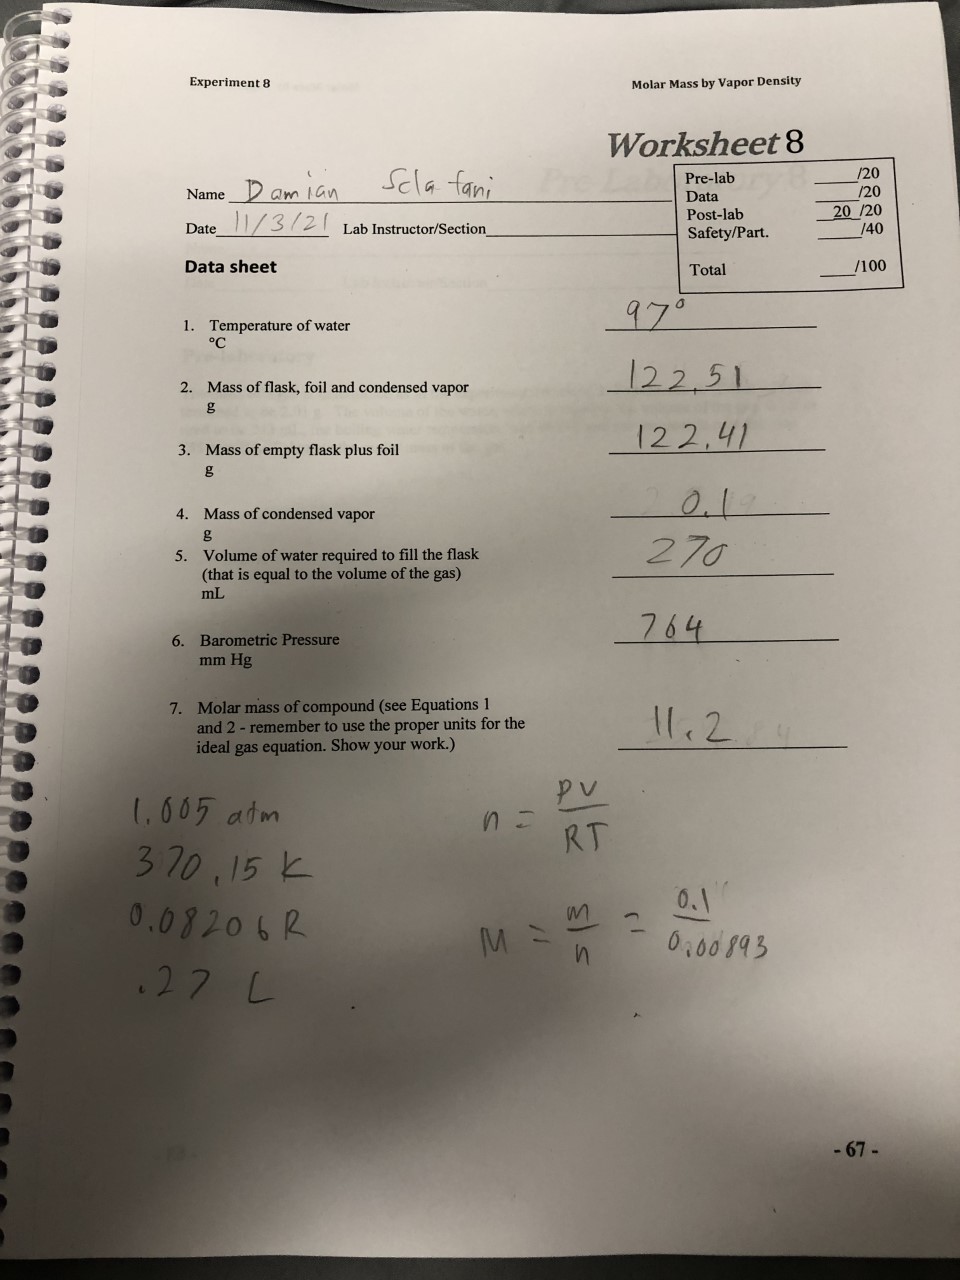 Experiment 8
Molar Mass by Vapor Density
Worksheet 8
Name Damian Sclafani
Date 11/3/21 Lab Instructor/Section
Pre-lab /20
Data /20
Post-lab 20 /20
Safety/Part. /40
Total /100
Data sheet
1. Temperature of water 97°
°C
2. Mass of flask, foil and condensed vapor 122.51
g
3. Mass of empty flask plus foil 122.41
g
4. Mass of condensed vapor 0.1
g
5. Volume of water required to fill the flask 270
(that is equal to the volume of the gas)
mL
6. Barometric Pressure 764
mm Hg
7. Molar mass of compound (see Equations 1
and 2 - remember to use the proper units for the 11.2
ideal gas equation. Show your work.)
1.005 atm
370.15 K
0.08206 R
.27 L
n = PV / RT
M = m / n = 0.1 / 0.00893
- 67 -